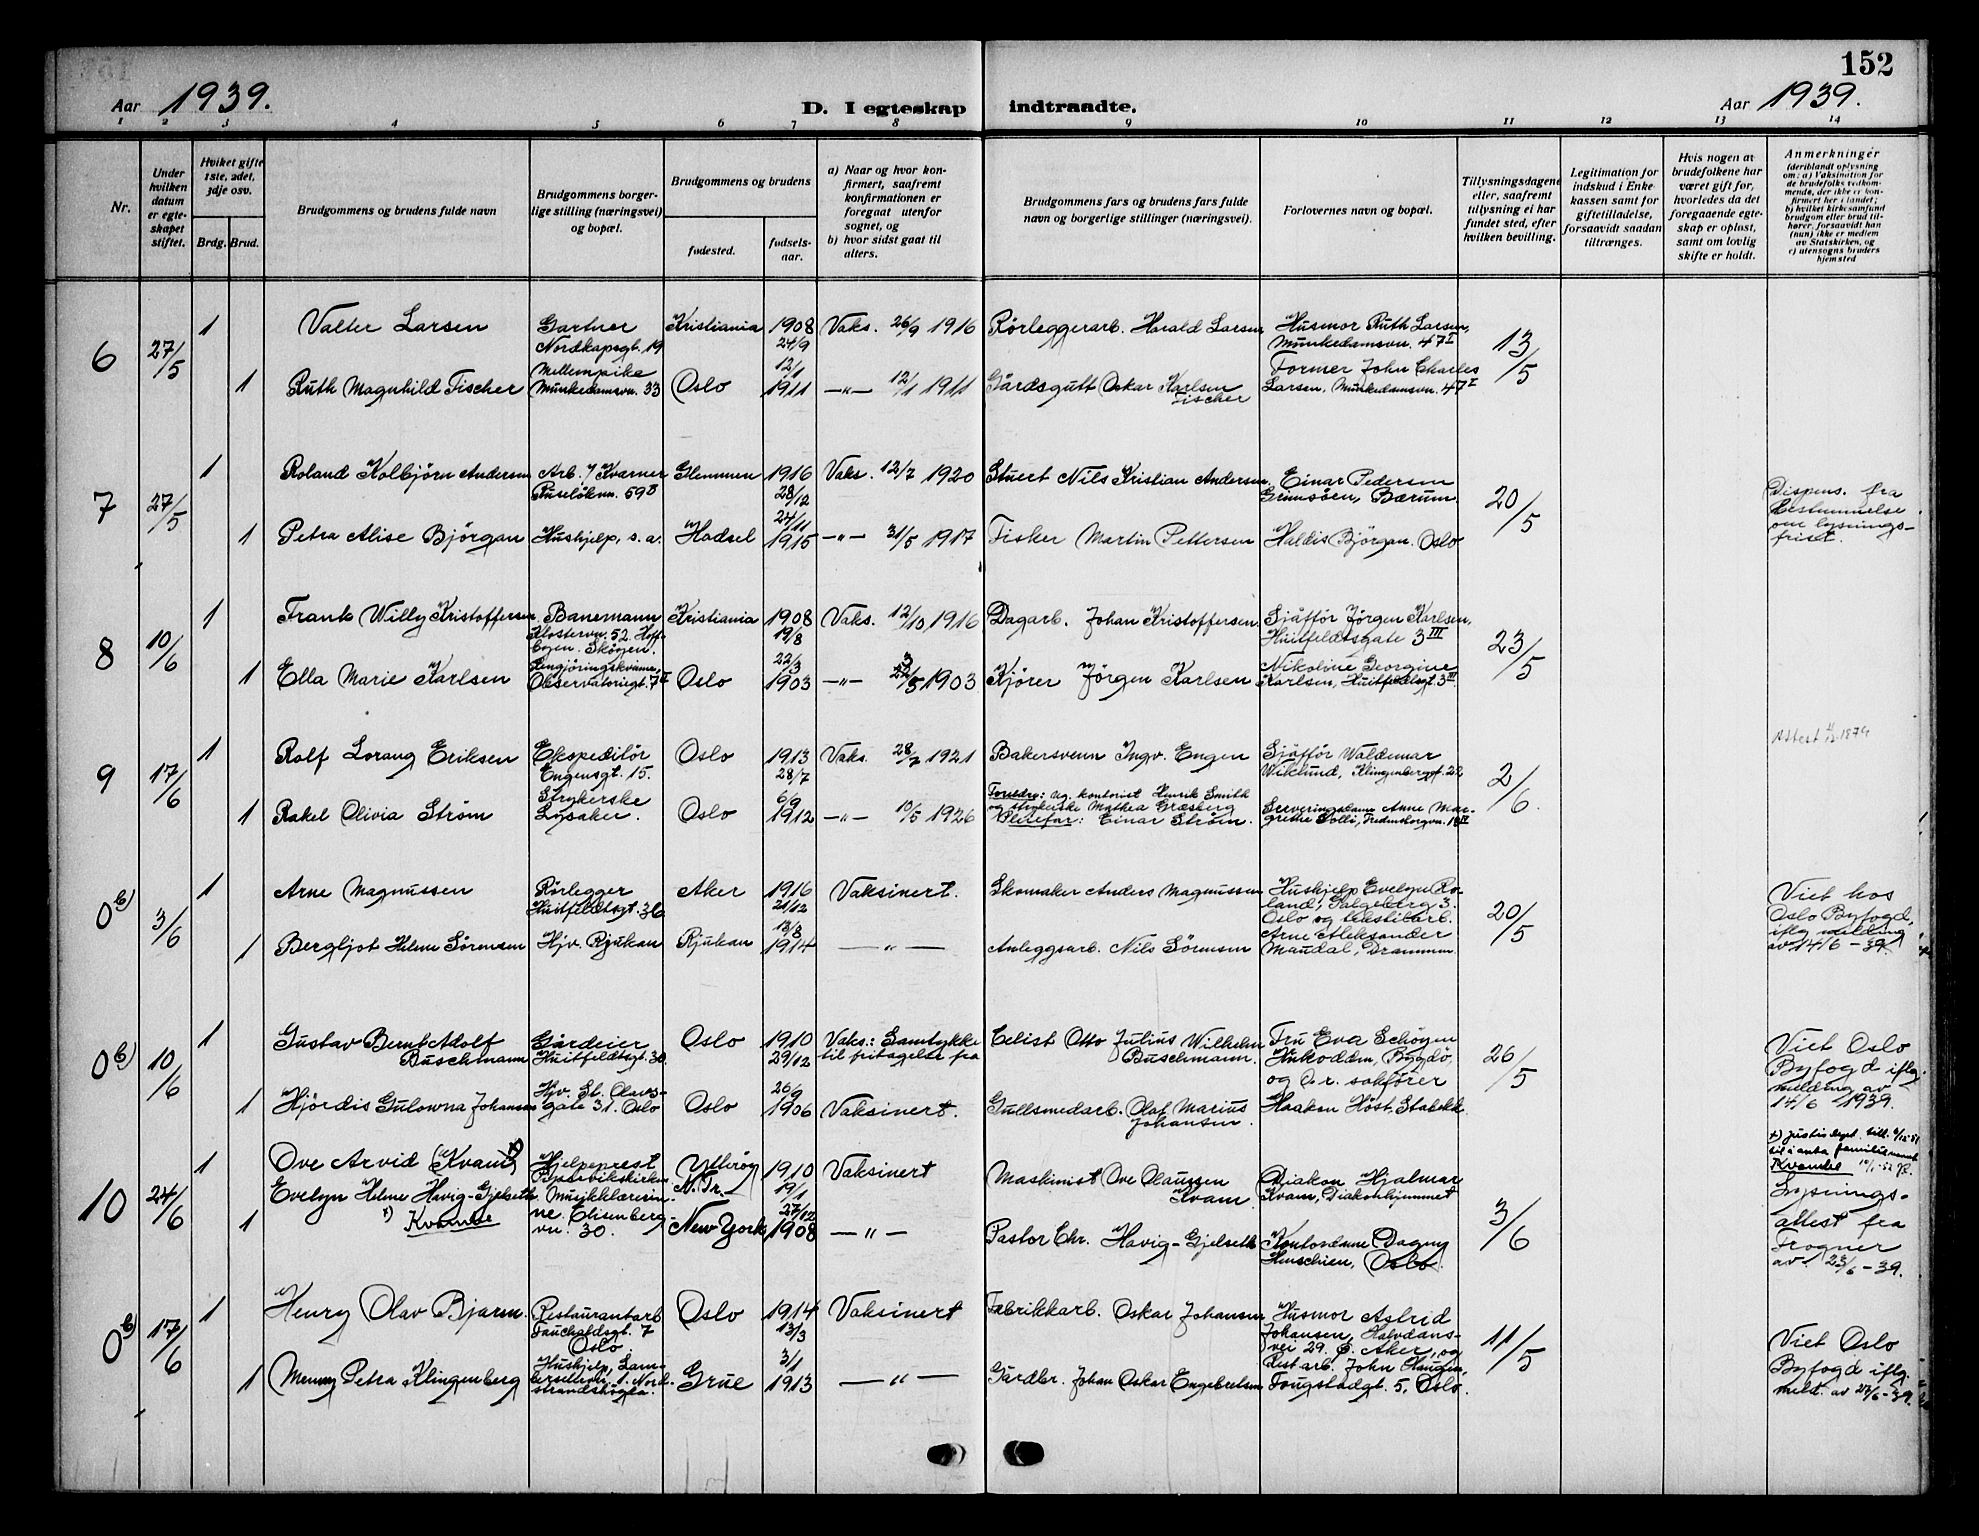 152
Aar 1939.
D. I egteskap indtraadte.
Aar 1939.
1 2 3 4 5 6 7 8 9 10 11 12 13 14
Nr.
Under hvilken datum er egteskapet stiftet.
Hvilket gifte 1ste, 2det, 3dje osv.
Brdg. Brud.
Brudgommens og brudens fulde navn
Brudgommens borgerlige stilling (næringsvei) og bopæl.
Brudgommens og brudens
fødested.
fødselsaar.
a) Naar og hvor konfirmert, saafremt konfirmationen er foregaat utenfor sognet, og
b) hvor sidst gaat til alters.
Brudgommens fars og brudens fars fulde navn og borgerlige stillinger (næringsvei).
Forlovernes navn og bopæl.
Tillysningsdagene eller, saafremt tillysning ei har fundet sted, efter hvilken bevilling.
Legitimation for indskud i Enkekassen samt for giftetilladelse, forsaavidt saadan tiltrænges.
Hvis nogen av brudefolkene har været gift før, hvorledes da det foregaaende egteskap er opløst, samt om lovlig skifte er holdt.
Anmerkninger (deriblandt oplysning om: a) Vaksination for de brudefolks vedkommende, der ikke er konfirmert her i landet; b) hvilket kirkesamfund brudgom eller brud tilhører, forsaavidt han (hun) ikke er medlem av Statskirken, og c) utensogns bruders hjemsted
6 27/5 1 Valter Larsen Gartner Nordkapsgt. 19 Kristiania 1908 24/9 Vaks. 26/9 1916 Rörleggerarb. Harald Larsen Husmor Ruth Larsen, Munkedamsvn. 47 I 13/5
1 Ruth Magnhild Fischer Mellempike Munkedamsvn. 33 Oslo 12/1 1911 —"— 12/1 1911 Gårdsgutt Oskar Karlsen Fischer Former John Charles Larsen, Munkedamsvn. 47 I
7 27/5 1 Roland Kolbjörn Andersen Arb. / Kværner Ruselökvn. 59 Glemmen 1916 28/12 Vaks. 12/7 1920 Stuert Nils Kristian Andersen Einar Pedersen Grimsöen, Bærum 20/5 Dispens. fra bestemmelse om lysningsfrist.
1 Petra Alise Björgan Hushjelp, s.a. Hadsel 24/11 1915 —"— 31/5 1917 Fisker Martin Pettersen Haldis Björgan. Oslo
8 10/6 1 Frank Willy Kristoffersen Banemann Klostervn. 52. Hoffbyen. Sköyen. Kristiania 1908 19/8 Vaks. 12/10 1916 Dagarb. Johan Kristoffersen Sjåfför Jörgen Karlsen, Huitfeldtsgate 3 III 23/5
1 Ella Marie Karlsen Rengjöringskvinne, Observatoriegt. 7 II Oslo 22/3 1903 —"— 1903 Kjörer Jörgen Karlsen Nikoline Georgine Karlsen, Huitfeldtsgt. 3 III
9 17/6 1 Rolf Lorang Eriksen Ekspeditör Engensgt. 15. Oslo 1913 28/7 Vaks. 28/7 1921 Bakersvenn Ingv. Engen Sjåfför Waldemar Wiklund, Klingenberggt. 22 2/6
1 Rakel Olivia Ström Strykerske Lysaker. Oslo 6/9 1912 —"— 10/5 1926 Foreldre: ug. kontorist Henrik Smith og strykerske Mathea Græsberg Pleiefar: Einar Ström. Serveringsdame Anne Margrethe Solli, Fredensborgvn.
0 b) 3/6 1 Arne Magnussen Rörlegger Huitfeldtsgt. 36 Aker 1916 21/12 Vaksinert. Skomaker Anders Magnussen Hushjelp Evelyn Roland, Galgeberg 3. Oslo og tekstilarb. Arne Aleksander Maudal, Drammen 20/5 Viet hos Oslo Byfogd, iflg melding av 14/6 – 39.
1 Bergljot Helene Sörensen Hjv. Rjukan Rjukan 13/8 1914 — " — Anleggsarb. Nils Sörensen
0 b) 10/6 1 Gustav Bernt Adolf Buschmann Gårdeier Huitfeldtsgt. 30 Oslo 1910 29/12 Vaks.: Samtykke til fritagelse fra Celist Otto Julius Wilhelm Buschmann. Fru Eva Schöyen Hukodden, Bygdö, og O.r. sakförer Haakon Höst. Stabekk 26/5 Viet Oslo Byfogd iflg. melding av 14/6 1939.
1 Hjördis Gulowna Johansen Hjv. St. Olavsgate 31. Oslo Oslo 26/9 1906 Vaksinert. Gullsmedarb. Olaf Marius Johansen.
10 24/6 1 Ove Arvid (Kvam) x) Hjelpeprest Bjørvikskirken Ytteröy N. Tr. 1910 19/1 Vaksinert Maskinist Ove Olaussen Kvam Diakon Hjalmar Kvam, Diakonhjemmet 3/6 x) Justisdept. till. til å anta familienavnet Kvambe
Lysningsattest fra Frogner av 23/6 – 39.
1 Evelyn Helene Havig-Gjelseth x) Kvamhe Musikklærerinne. Elisenbergvn. 30. New York 27/12 1908 — " — Pastor Chr. Havig-Gjelseth Kontordame Dagny Henschien, Oslo.
0 b) 17/6 1 Henry Olav Bjaren. Restaurantarb Fauchaldsgt. 7 Oslo. Oslo 1914 13/3 Vaksinert Fabrikkarb. Oskar Johansen Husmor Astrid Johansen, Halvdansvei 29. Aker, og Restarb. John Haugen, Tougstadgt. 5, Oslo. 11/5 Viet Oslo Byfogd iflg. meld. av 27/6 – 39.
1 Menny Petra Klingenberg Hushjelp, Nordstrandshögda. Grue 3/1 1913 — " — Gårdbr. Johan Oskar Engebretsen